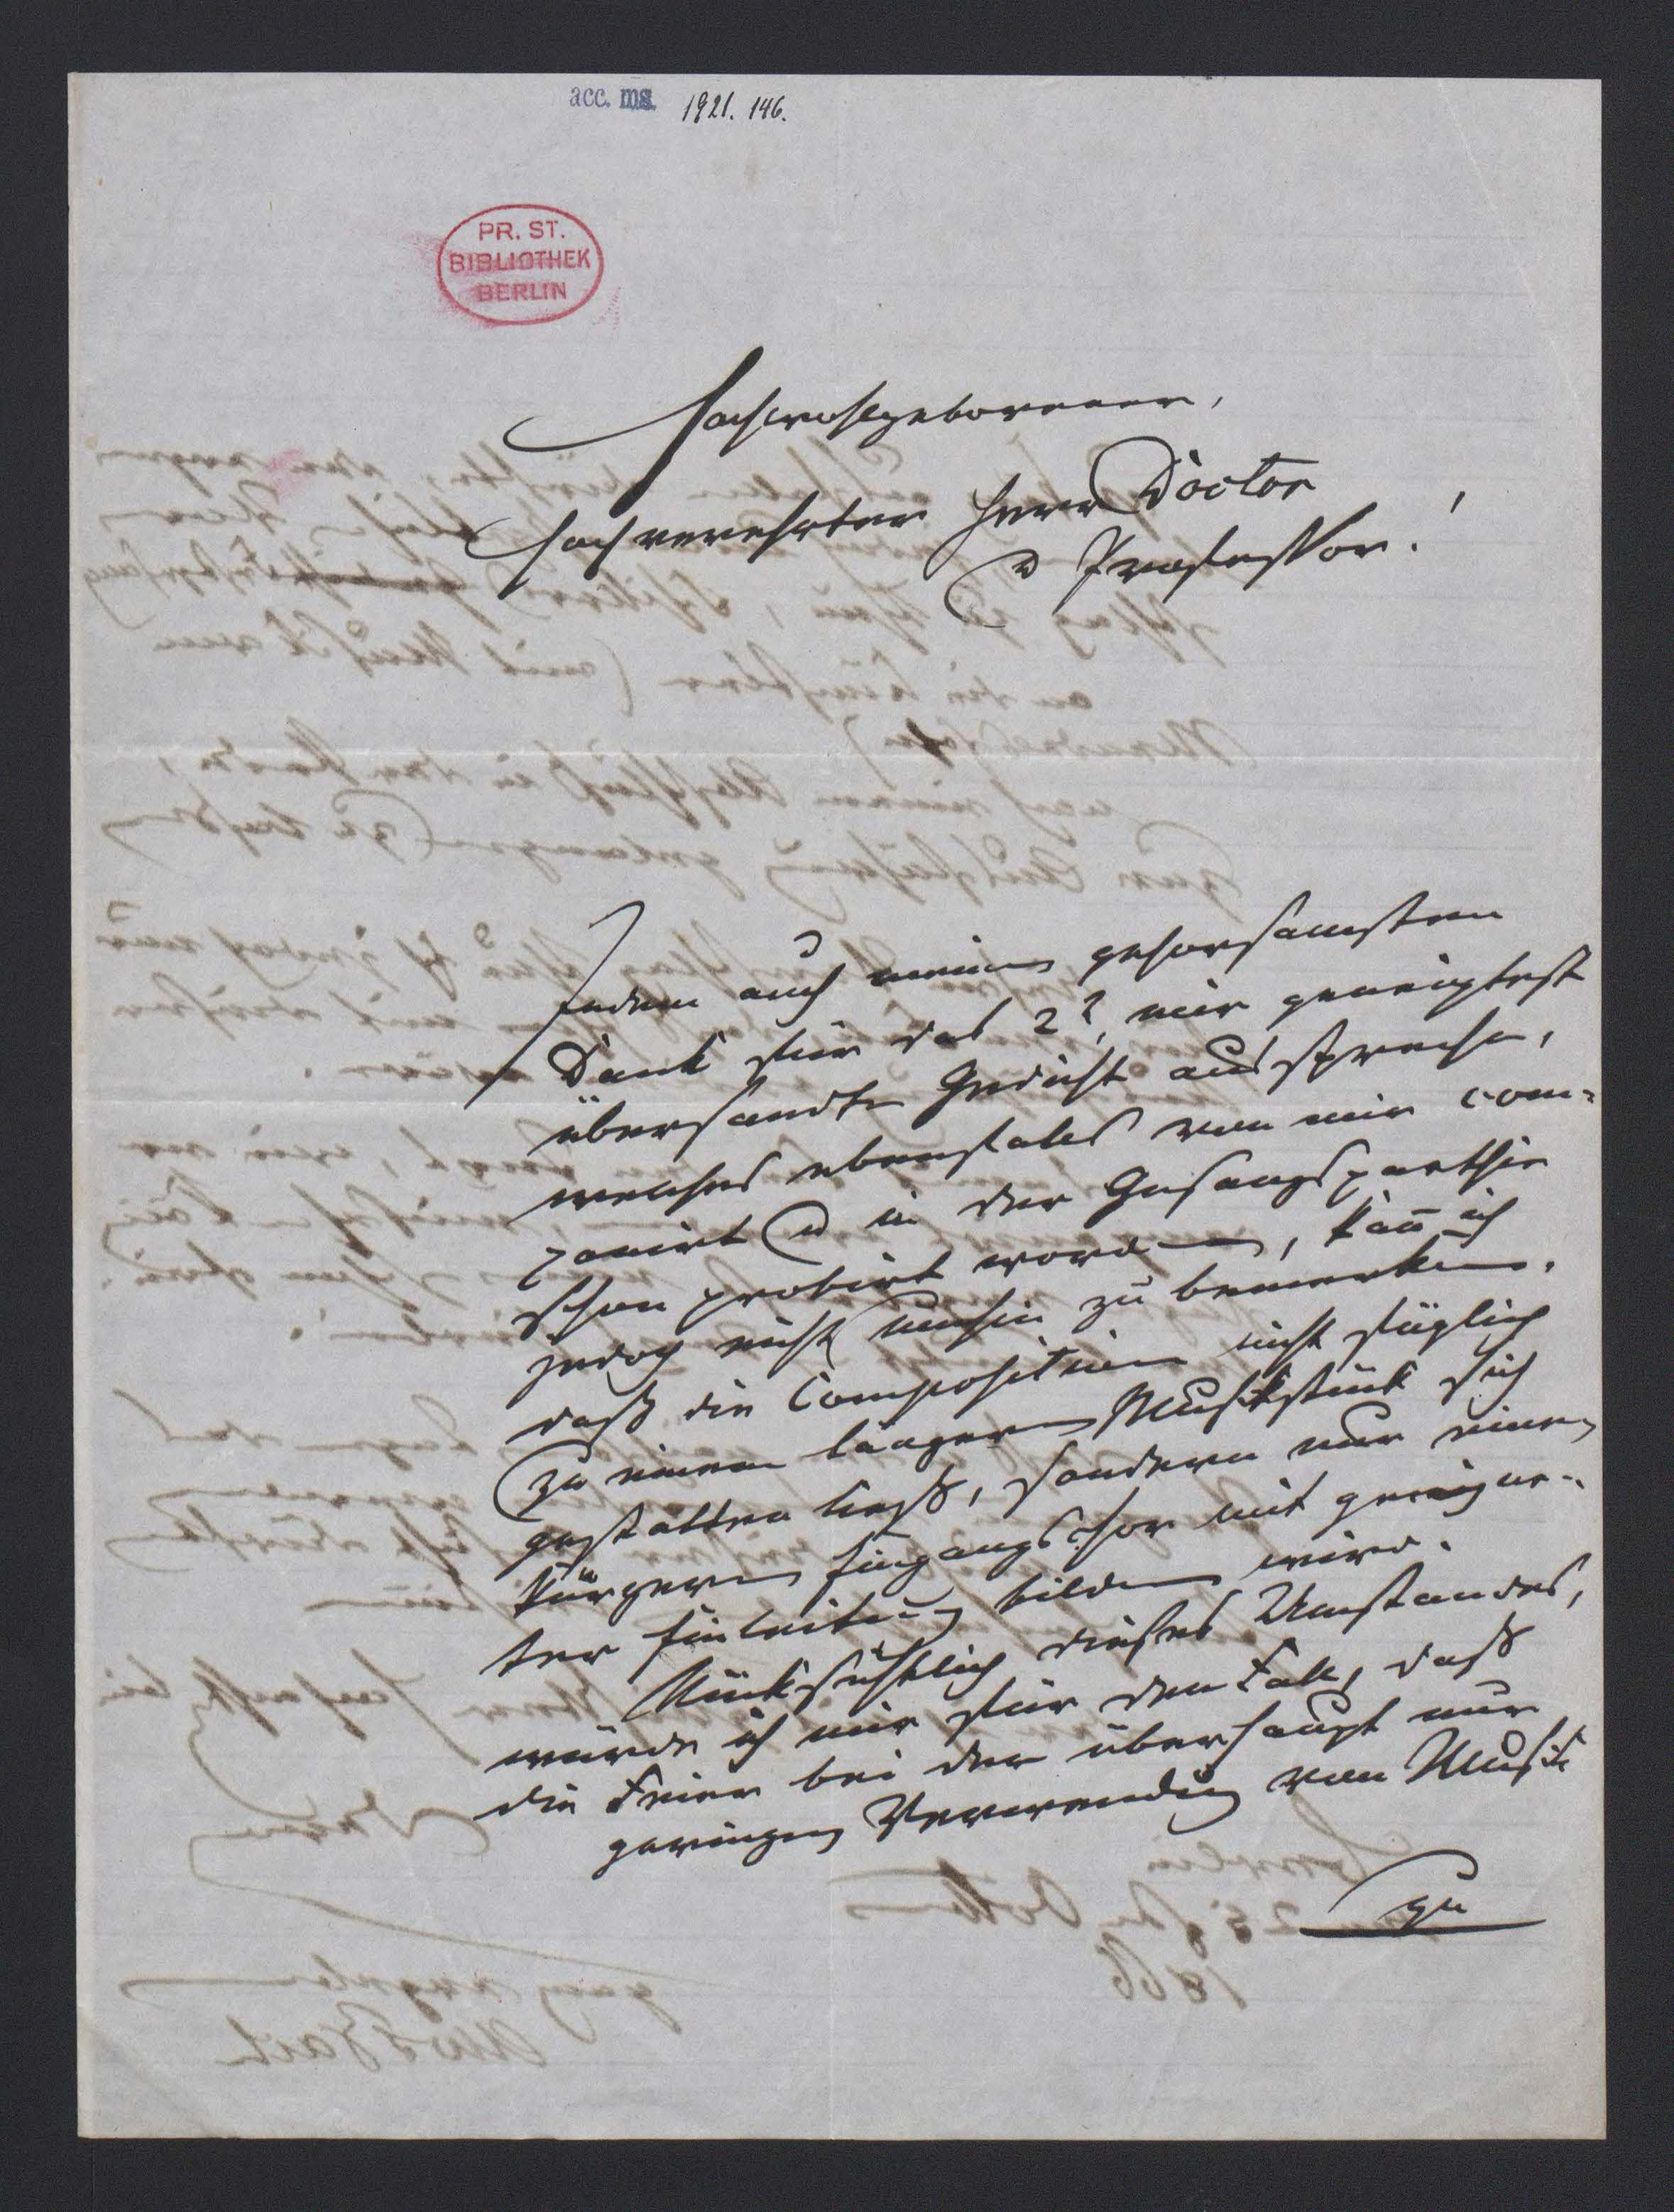 acc. ms. 1921. 146.
PR. ST.
BIBLIOTHEK
BERLIN
Hochwohlgeborener,
Hochverehrter Herr Doctor
u Professor!
Indem auch meinen gehorsamsten
Dank für das 2t, mir geneigtest
übersandte Gedicht ausspreche,
welches ebenfalls von mir com-
ponirt u in der Gesangsparthie
schon probirt worden, kann ich
jedoch nicht umhin zu bemerken,
daß die Composition nicht füglich
zu einem längeren Musikstück sich
gestalten ließ, sondern nur einen
kürzeren Eingangschor mit geeigne-
ter Einleitung bilden wird.
Rücksichtlich dieses Umstandes,
würde ich mir für den Fall, daß
die Feier bei der überhaupt nur
geringen Verwendung von Musik
zu